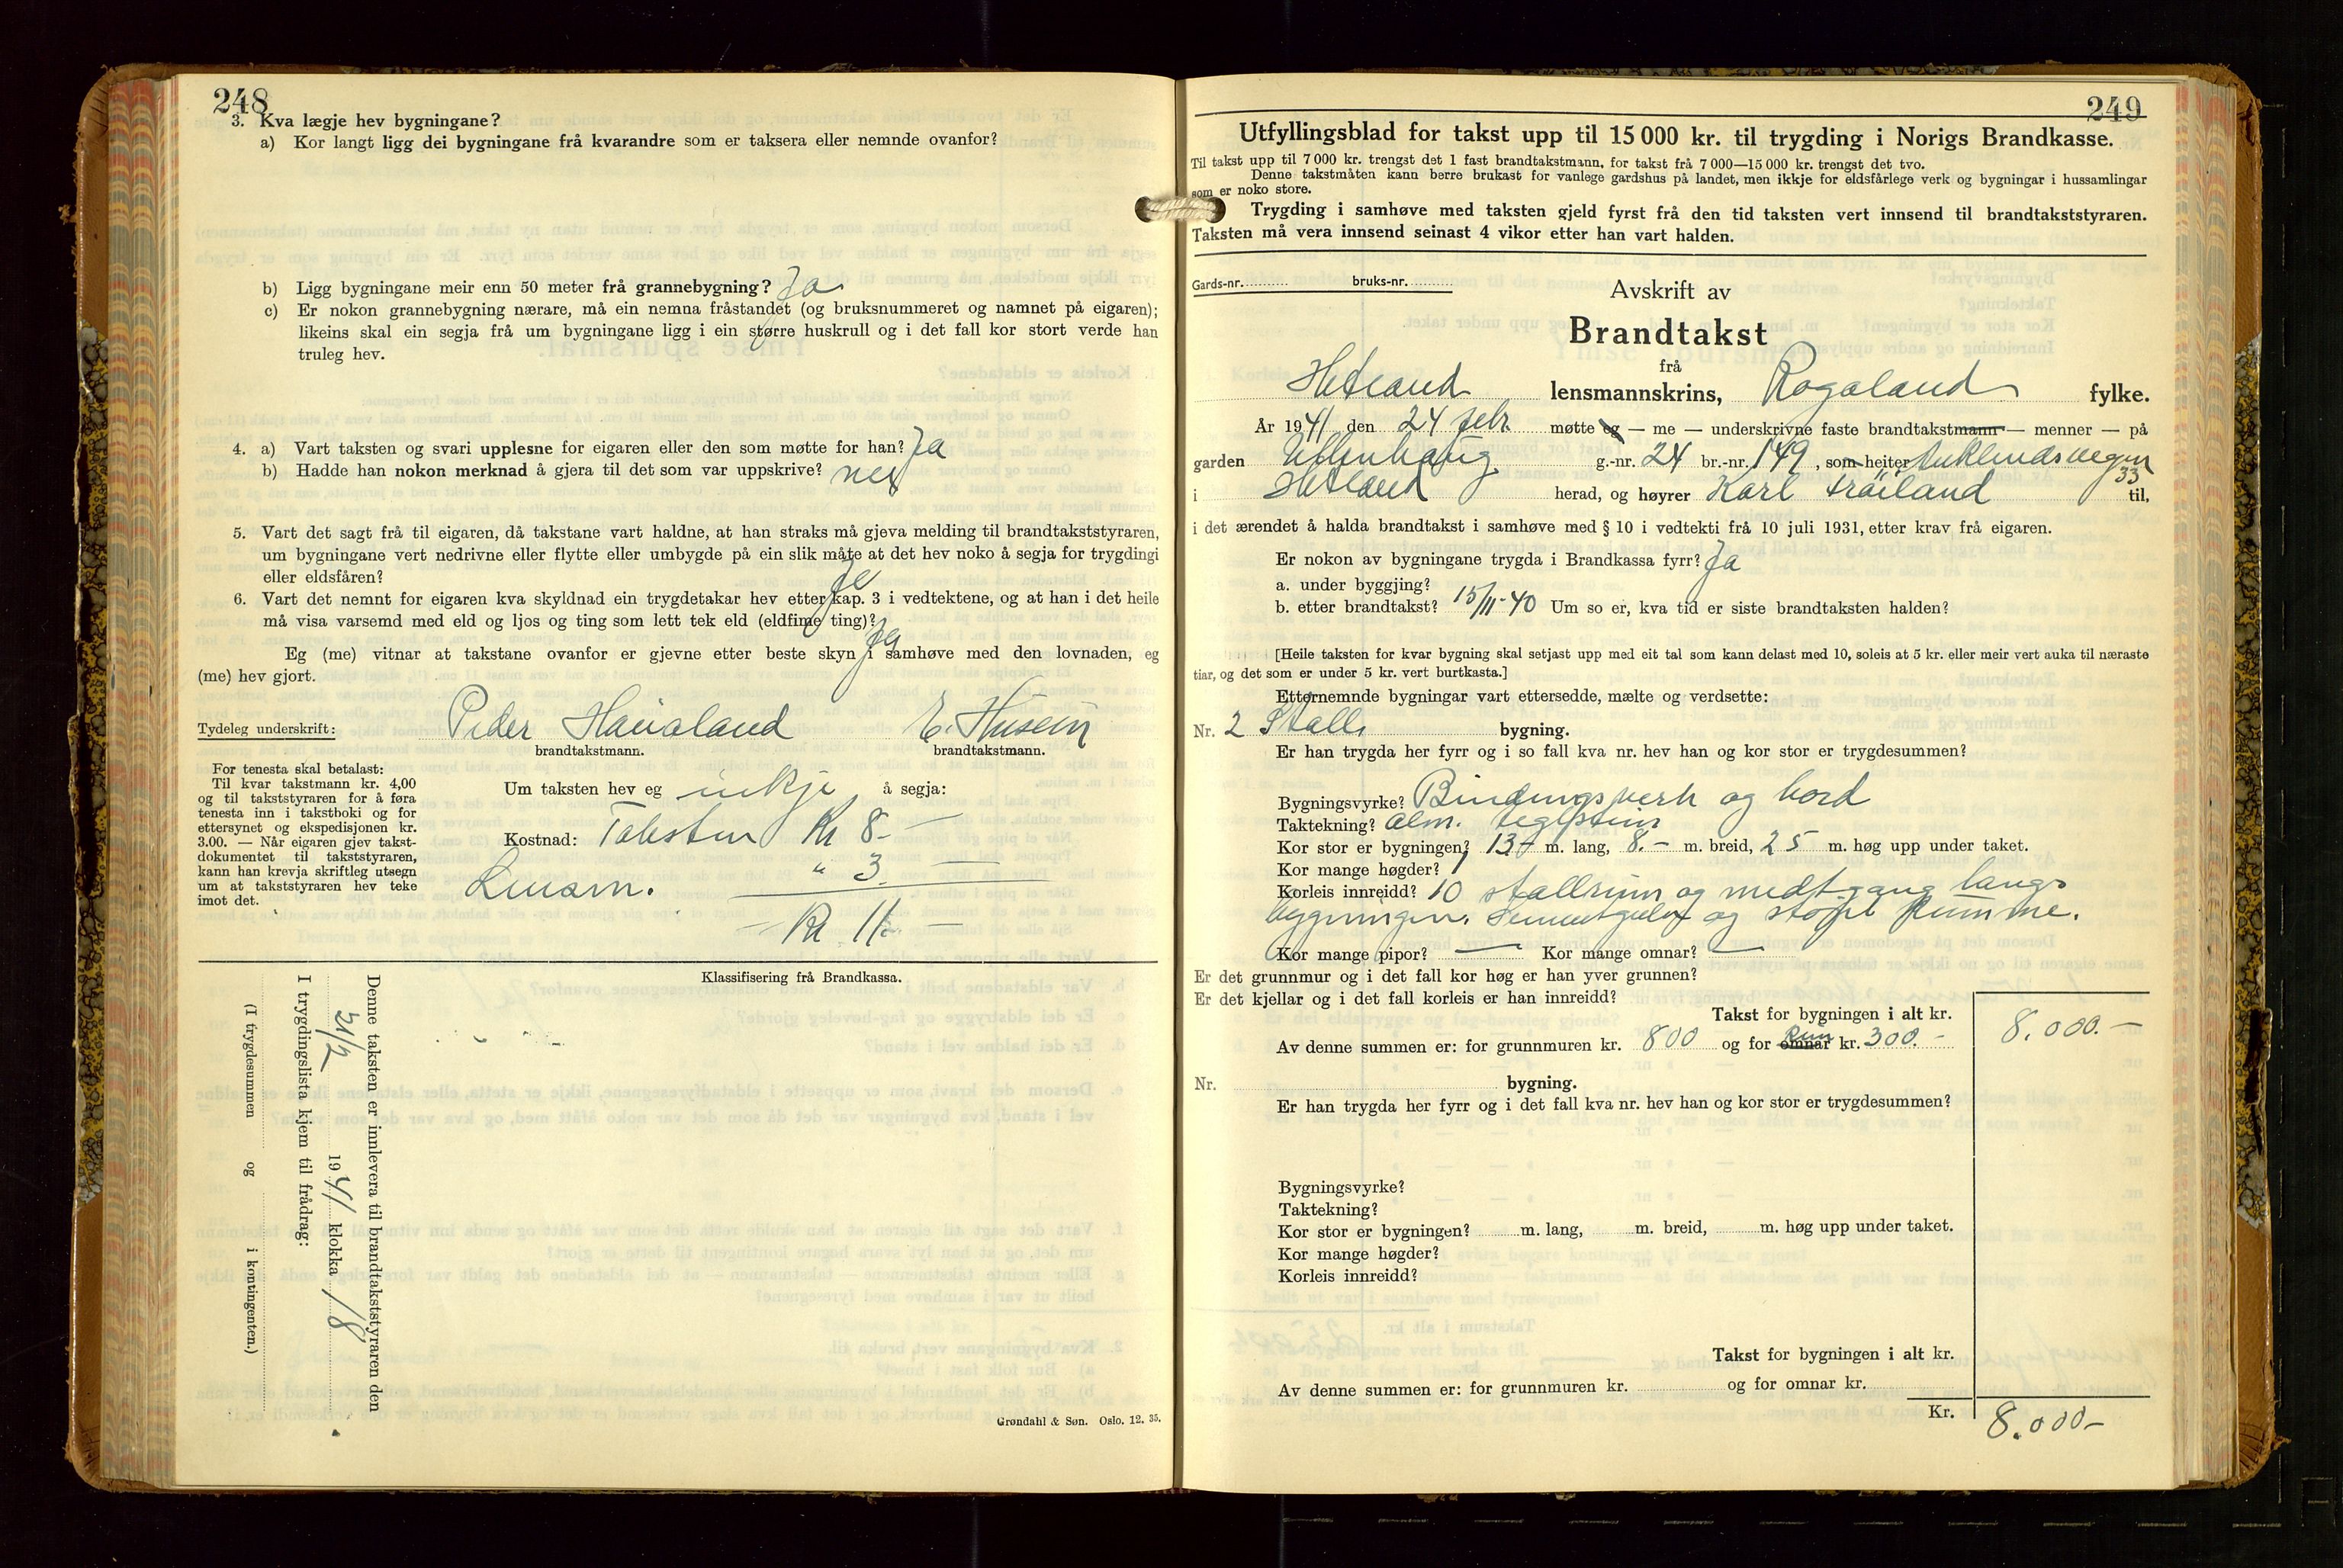 248
3. Kva lægje hev bygningane?
a) Kor langt ligg dei bygningane frå kvarandre som er taksera eller nemnde ovanfor?
b) Ligg bygningane meir enn 50 meter frå grannebygning? Ja
c) Er nokon grannebygning nærare, må ein nemna fråstandet (og bruksnummeret og namnet på eigaren);
likeins skal ein segja frå um bygningane ligg i ein større huskrull og i det fall kor stort verde han
truleg hev.
4. a) Vart taksten og svari upplesne for eigaren eller den som møtte for han? Ja
b) Hadde han nokon merknad å gjera til det som var uppskrive? nei
5. Vart det sagt frå til eigaren, då takstane vart haldne, at han straks må gjeva melding til brandtakststyraren,
um bygningane vert nedrivne eller flytte eller umbygde på ein slik måte at det hev noko å segja for trygdingi
eller eldsfåren? Ja
6. Vart det nemnt for eigaren kva skyldnad ein trygdetakar hev etter kap. 3 i vedtektene, og at han i det heile
må visa varsemd med eld og ljos og ting som lett tek eld (eldfime ting)? Ja
Eg (me) vitnar at takstane ovanfor er gjevne etter beste skyn i samhøve med den lovnaden, eg
(me) hev gjort.
Tydeleg underskrift: Peder Haualand E. Husein
brandtakstmann. brandtakstmann.
For tenesta skal betalast:
Til kvar takstmann kr. 4,00
og til takststyraren for å føra
tenesta inn i takstboki og for
ettersynet og ekspedisjonen kr.
3.00. — Når eigaren gjev takst-
dokumentet til takststyraren,
kann han krevja skriftleg utsegn
um at takststyraren hev teke
imot det.
Um taksten hev eg inkje å segja:
Kostnad: Taksten Kr 8.—
Lensm. " 3 —
Kr 11.—
Klassifisering frå Brandkassa.
Denne taksten er innlevera til brandtakststyraren den
21/2 1941 klokka 18
I trygdingslista kjem til frådrag:
(I trygdesummen og i kontingenten.)
Grøndahl & Søn. Oslo. 12. 35.
249
Utfyllingsblad for takst upp til 15 000 kr. til trygding i Norigs Brandkasse.
Til takst upp til 7 000 kr. trengst det 1 fast brandtakstmann, for takst frå 7 000—15 000 kr. trengst det tvo.
Denne takstmåten kann berre brukast for vanlege gardshus på landet, men ikkje for eldsfårlege verk og bygningar i hussamlingar
som er noko store.
Trygding i samhøve med taksten gjeld fyrst frå den tid taksten vert innsend til brandtakststyraren.
Taksten må vera innsend seinast 4 vikor etter han vart halden.
Gards-nr. bruks-nr.
Avskrift av
Brandtakst
frå
Hetland lensmannskrins, Rogaland fylke.
År 1941 den 24 febr. møtte eg — me — underskrivne faste brandtakstmann — menner — på
garden Ullenhaug g.-nr. 24 br.-nr. 149, som heiter Auklendsvegen 33
i Hetland herad, og høyrer Karl til,
i det ærendet å halda brandtakst i samhøve med § 10 i vedtekti frå 10 juli 1931, etter krav frå eigaren.
Er nokon av bygningane trygda i Brandkassa fyrr? Ja
a. under byggjing?
b. etter brandtakst? 15/11-40 Um so er, kva tid er siste brandtaksten halden?
[Heile taksten for kvar bygning skal setjast upp med eit tal som kann delast med 10, soleis at 5 kr. eller meir vert auka til næraste
tiar, og det som er under 5 kr. vert burtkasta.]
Etternemnde bygningar vart ettersedde, mælte og verdsette:
Nr. 2 Stall bygning.
Er han trygda her fyrr og i so fall kva nr. hev han og kor stor er trygdesummen?
Bygningsvyrke? Bindingsverk og bord
Taktekning? alm. teglstein
Kor stor er bygningen? 13.— m. lang, 8.— m. breid, 25 m. høg upp under taket.
Kor mange høgder? 1
Korleis innreidd? 10 stallrum og midtgang langs
bygningen. Sementgulv og støpt Rumme.
Kor mange pipor? — Kor mange omnar? —
Er det grunnmur og i det fall kor høg er han yver grunnen?
Er det kjellar og i det fall korleis er han innreidd?
Takst for bygningen i alt kr. 8.000.—
Av denne summen er: for grunnmuren kr. 800 og for omnar kr. 300.—
Nr. bygning.
Er han trygda her fyrr og i det fall kva nr. hev han og kor stor er trygdesummen?
Bygningsvyrke?
Taktekning?
Kor stor er bygningen? m. lang, m. breid, m. høg upp under taket.
Kor mange høgder?
Korleis innreidd?
Takst for bygningen i alt kr.
Av denne summen er: for grunnmuren kr. og for omnar kr.
Kr. 8.000—